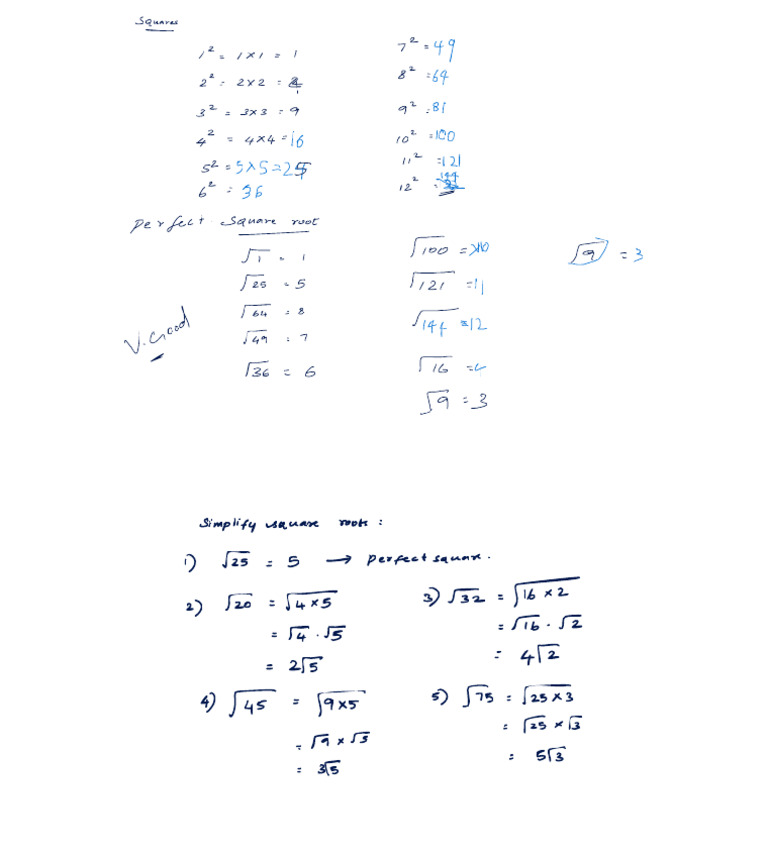 Squares
1² = 1 × 1 = 1
2² = 2 × 2 = 4
3² = 3 × 3 = 9
4² = 4 × 4 = 16
5² = 5 × 5 = 25
6² = 36
7² = 49
8² = 64
9² = 81
10² = 100
11² = 121
12² = 144
perfect square root
√1 = 1
√25 = 5
√64 = 8
√49 = 7
√36 = 6
V. Good
√100 = 10
√121 = 11
√144 = 12
√16 = 4
√9 = 3
√9 = 3
Simplify square roots :
1) √25 = 5 → perfect square.
2) √20 = √4 × 5
= √4 · √5
= 2√5
3) √32 = √16 × 2
= √16 · √2
= 4√2
4) √45 = √9 × 5
= √9 × √3
= 3√5
5) √75 = √25 × 3
= √25 × √3
= 5√3